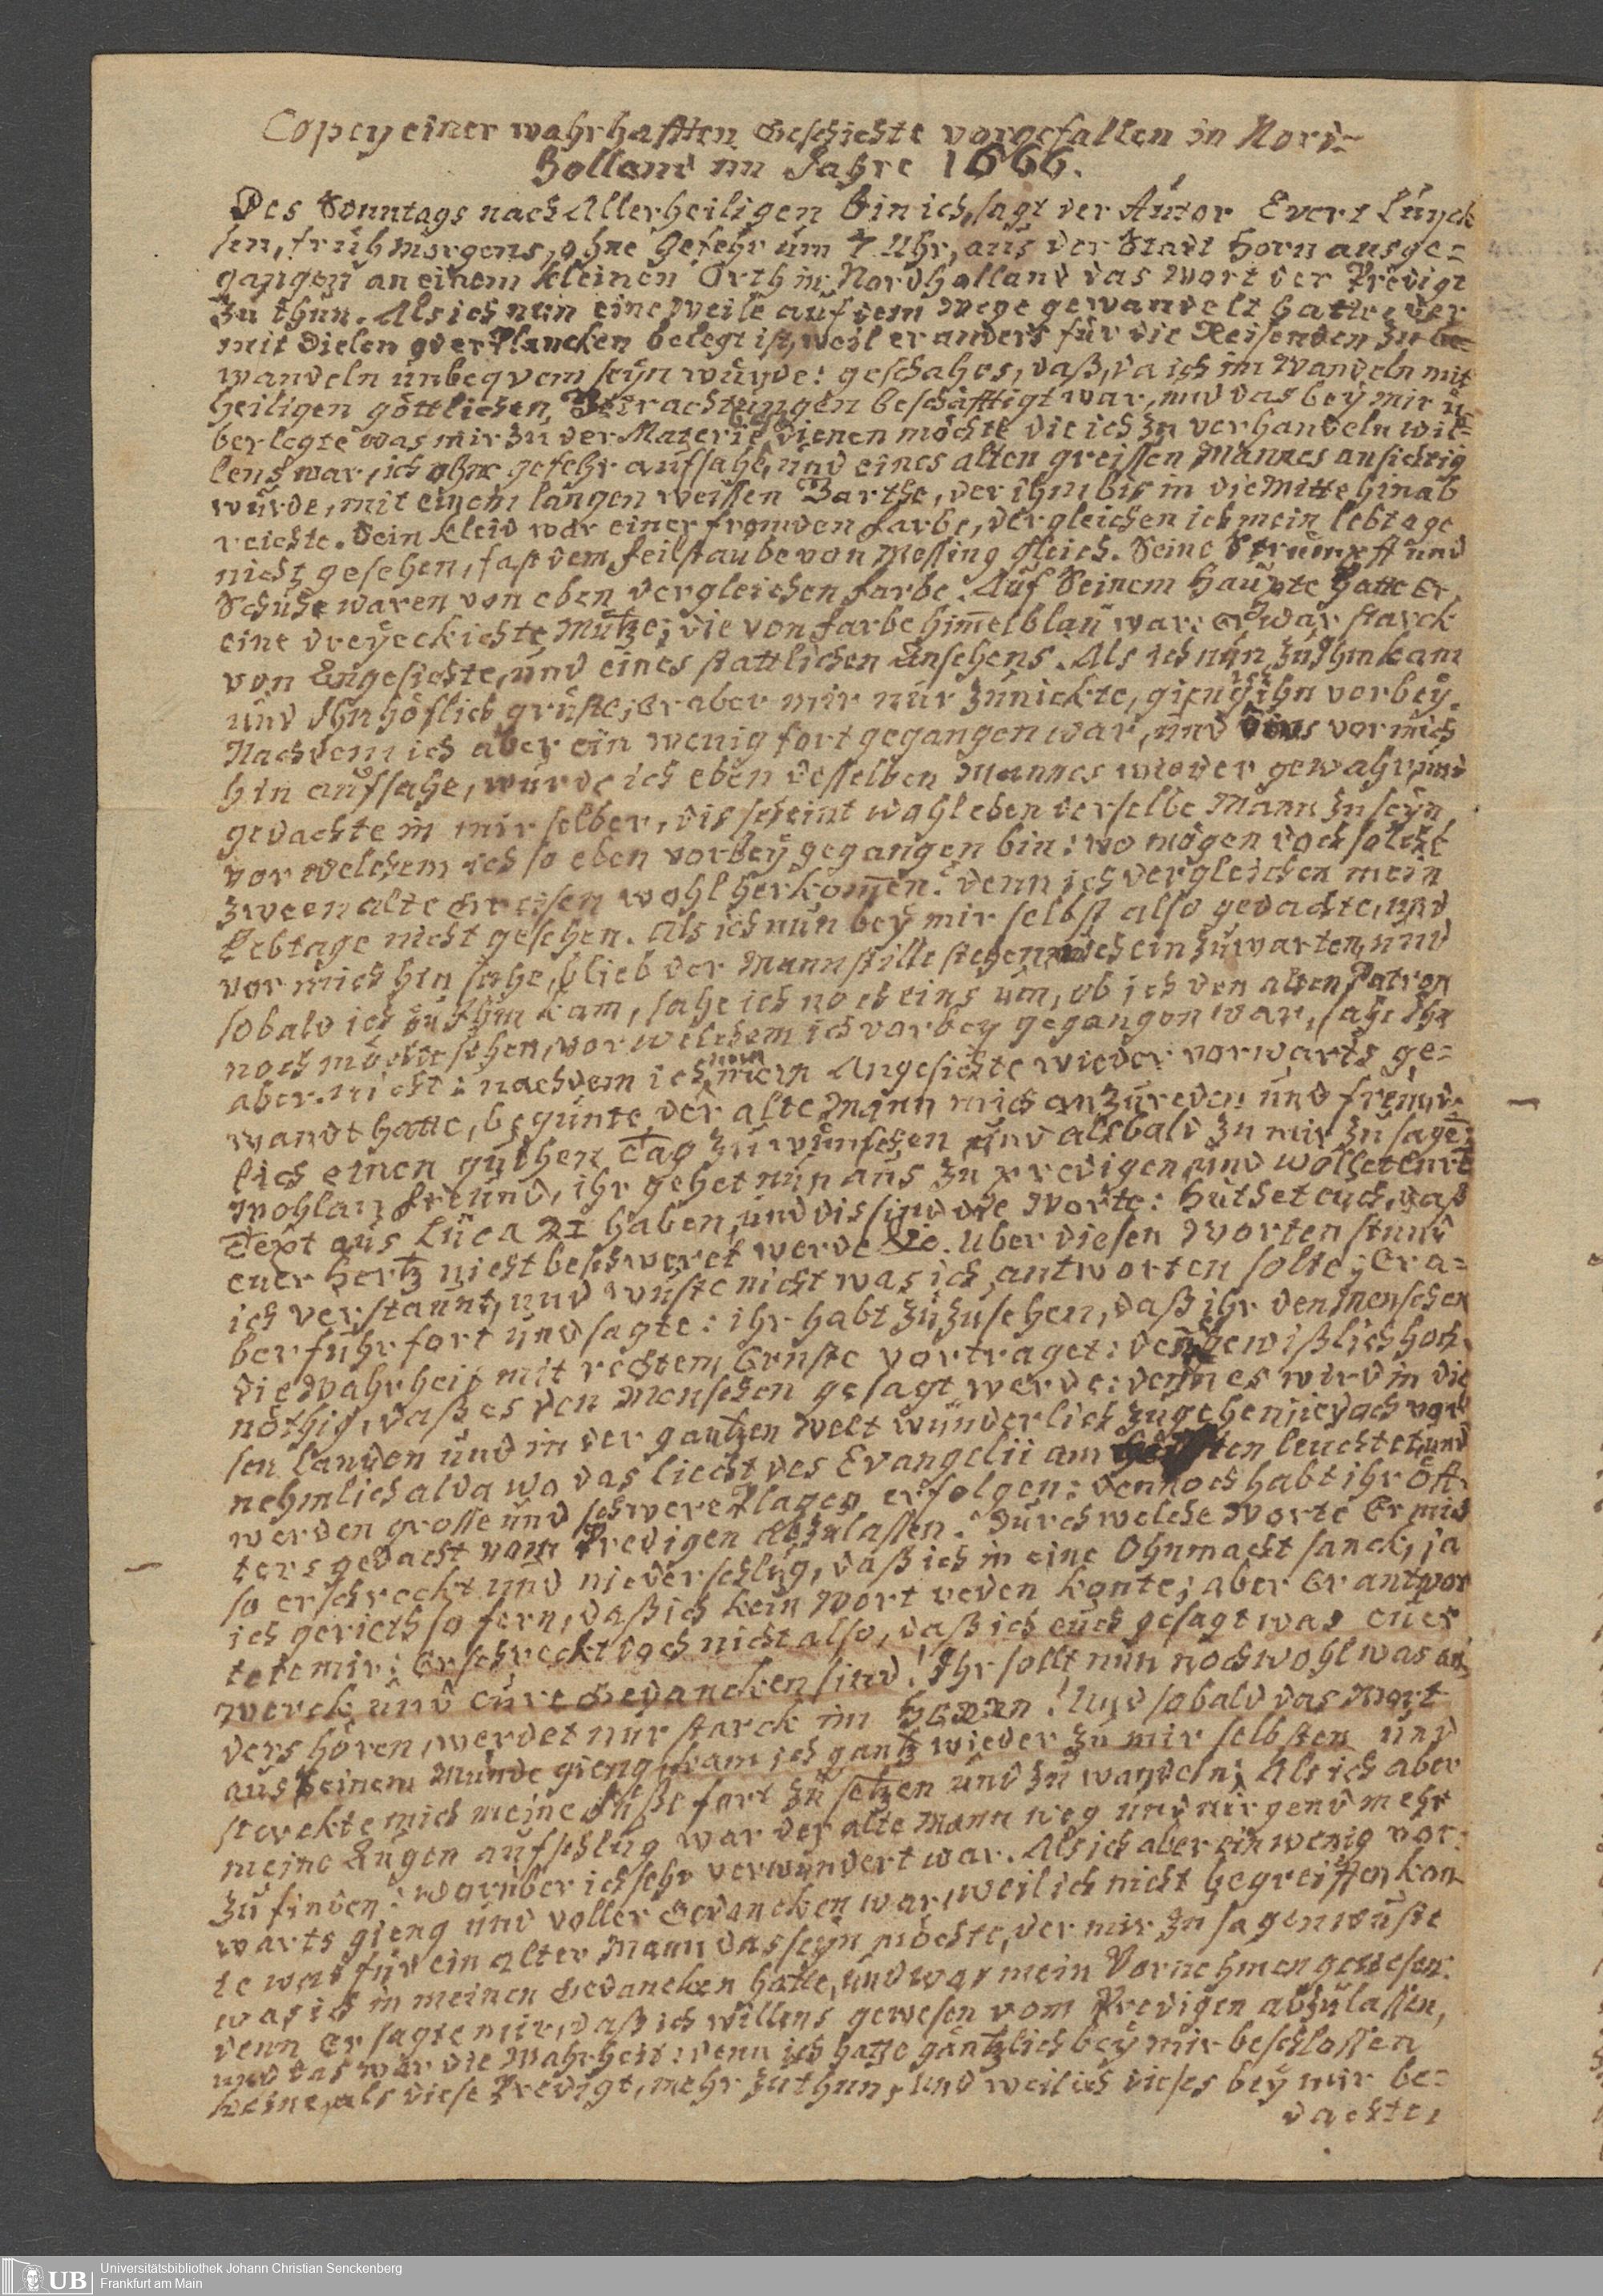 Copey einer wahrhafften Geschichte vorgefallen in Nord-
Holland im Jahre 1666.
Des Sonntags nach Allerheiligen bin ich, sagt der Autor Evert Luyck
sen, früh morgens, ohne gefehr um 7 Uhr, aus der Stadt Horn ausge=
gangen an einem kleinen Orth in Nordholland das Wort der Predigt
zu thun. Als ich nun eine weile auf dem Wege gewandelt hatte der
mit Dielen oder Plancken belegt ist, weil er anders für die Reisenden zu be=
wandeln unbeqvem seyn würde: geschah es, daß, da ich im Wandeln mit
heiligen göttlichen Betrachtungen beschäfftigt war, und das bey mir ü=
berlegte was mir zu der Materie dienen möchte die ich zu verhandeln wil=
lens war, ich ohne gefehr aufsahe, und eines alten greissen Mannes ansichtig
wurde, mit einem langen weissen Barthe, der ihm bis in die Mitte hinab
reichte. Sein Kleid war einer fremden Farbe, dergleichen ich mein lebtage
nicht gesehen, fast dem Feilstaube von Messing gleich. Seine Strümpff und
Schuhe waren von eben dergleichen Farbe. Auf Seinem Haupte hatte Er
eine dreyeckichte Mütze, die von Farbe him̄elblau war: er war starck
von Angesichte, und eines stattlichen Ansehens. Als ich nun zu Ihm kam
und Ihn höflich grüste, er aber mir nur zunickte, gieng ich ihn vorbey.
Nachdem ich aber ein wenig fort gegangen war, und vor mich
hin aufsahe, wurde ich eben desselben Mannes wieder gewahr, und
gedachte in mir selber, dis scheint wohl eben derselbe Mann zu seyn
vor welchem ich so eben vorbey gegangen bin: wo mögen doch solche
zween alte Greisen wohl herkom̄en? denn ich dergleichen mein
Lebtage nicht gesehen. Als ich nun bey mir selbst also gedachte, und
vor mich hin sahe, blieb der Mann stille stehen mich einzuwarten, und
sobald ich zu Ihm kam, sahe ich noch eins um, ob ich den alten Patron
noch möchte sehen, vor welchem ich vorbey gegangen war, sahe Ihn
aber nicht: nachdem ich nun mein Angesichte wieder vorwarts ge=
wandt hatte, begunte der alte Mann mich anzureden und freund=
lich einen guthen Tag zu wünschen und alsbald zu mir zu sagen:
Wohlan Freund, ihr gehet nun aus zu predigen und wollet euren
Text aus Luca 21 haben, und dis sind die Worte: Hüthet euch, daß
euer Hertz nicht beschweret werde &c. Uber diesen Worten stund
ich verstaunt, und wuste nicht was ich antworten solte; Er a=
ber fuhr fort und sagte: ihr habt zuzusehen, daß ihr den Menschen
die Wahrheit mit rechtem Ernste vortraget: den gewißlich hoch
nöthig, daß es den Menschen gesagt werde: denn es wird in die
sen Landen und in der gantzen Welt wunderlich zugehen, jedoch vor
nehmlich alda wo das Liecht des Evangelii am leuchtet, und
werden grosse und schwere Plagen erfolgen: dennoch habt ihr öff
ters gedacht vom Predigen abzulassen. Durch welche Worte Er mich
so erschreckt und niederschlug, daß ich in eine Ohnmacht sanck, ja
ich gerieth so fern, daß ich kein Wort reden konte; aber Er antwor
tete mir: Erschreckt doch nicht also, daß ich euch gesagt was euer
Werck und eure Gedancken sind! Ihr sollt nun noch wohl was an
ders hören, werdet nur starck im HERRN! Und sobald das Wort
aus seinem Munde gieng, kam ich gantz wieder zu mir selbsten und
sterckte mich meine Füße fort zu setzen und zu wandeln; Als ich aber
meine Augen aufschlug war der alte Mann weg und nirgend mehr
zu finden: worüber ich sehr verwundert war. Als ich aber ein wenig vor
warts gieng und voller Gedancken war, weil ich nicht begreiffen kon
te was für ein alter Mann das seyn möchte, der mir zu sagen wuste
was ich in meinen Gedancken hatte, und was mein Vornehmen gewesen:
denn Er sagte mir, daß ich willens gewesen vom Predigen abzulassen,
und das war die Wahrheit: denn ich hatte gäntzlich bey mir beschlossen
keine, als diese Predigt, mehr zu thun, und weil ich dieses bey mir be=
dachte,
Universitätsbibliothek Johann Christian Senckenberg
Frankfurt am Main
UB